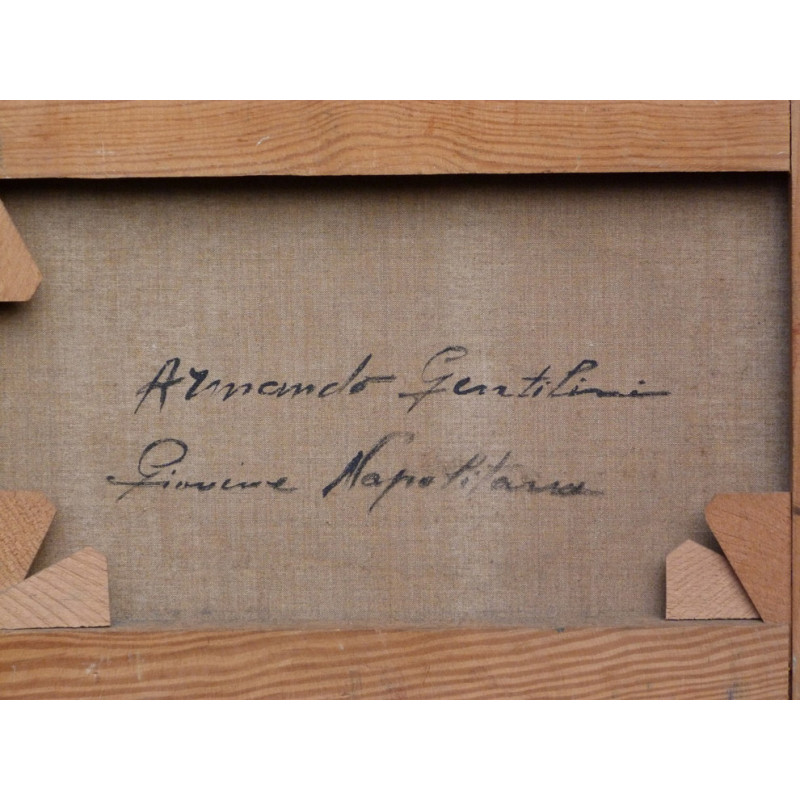 Armando Gentilini
Giovine Napolitana